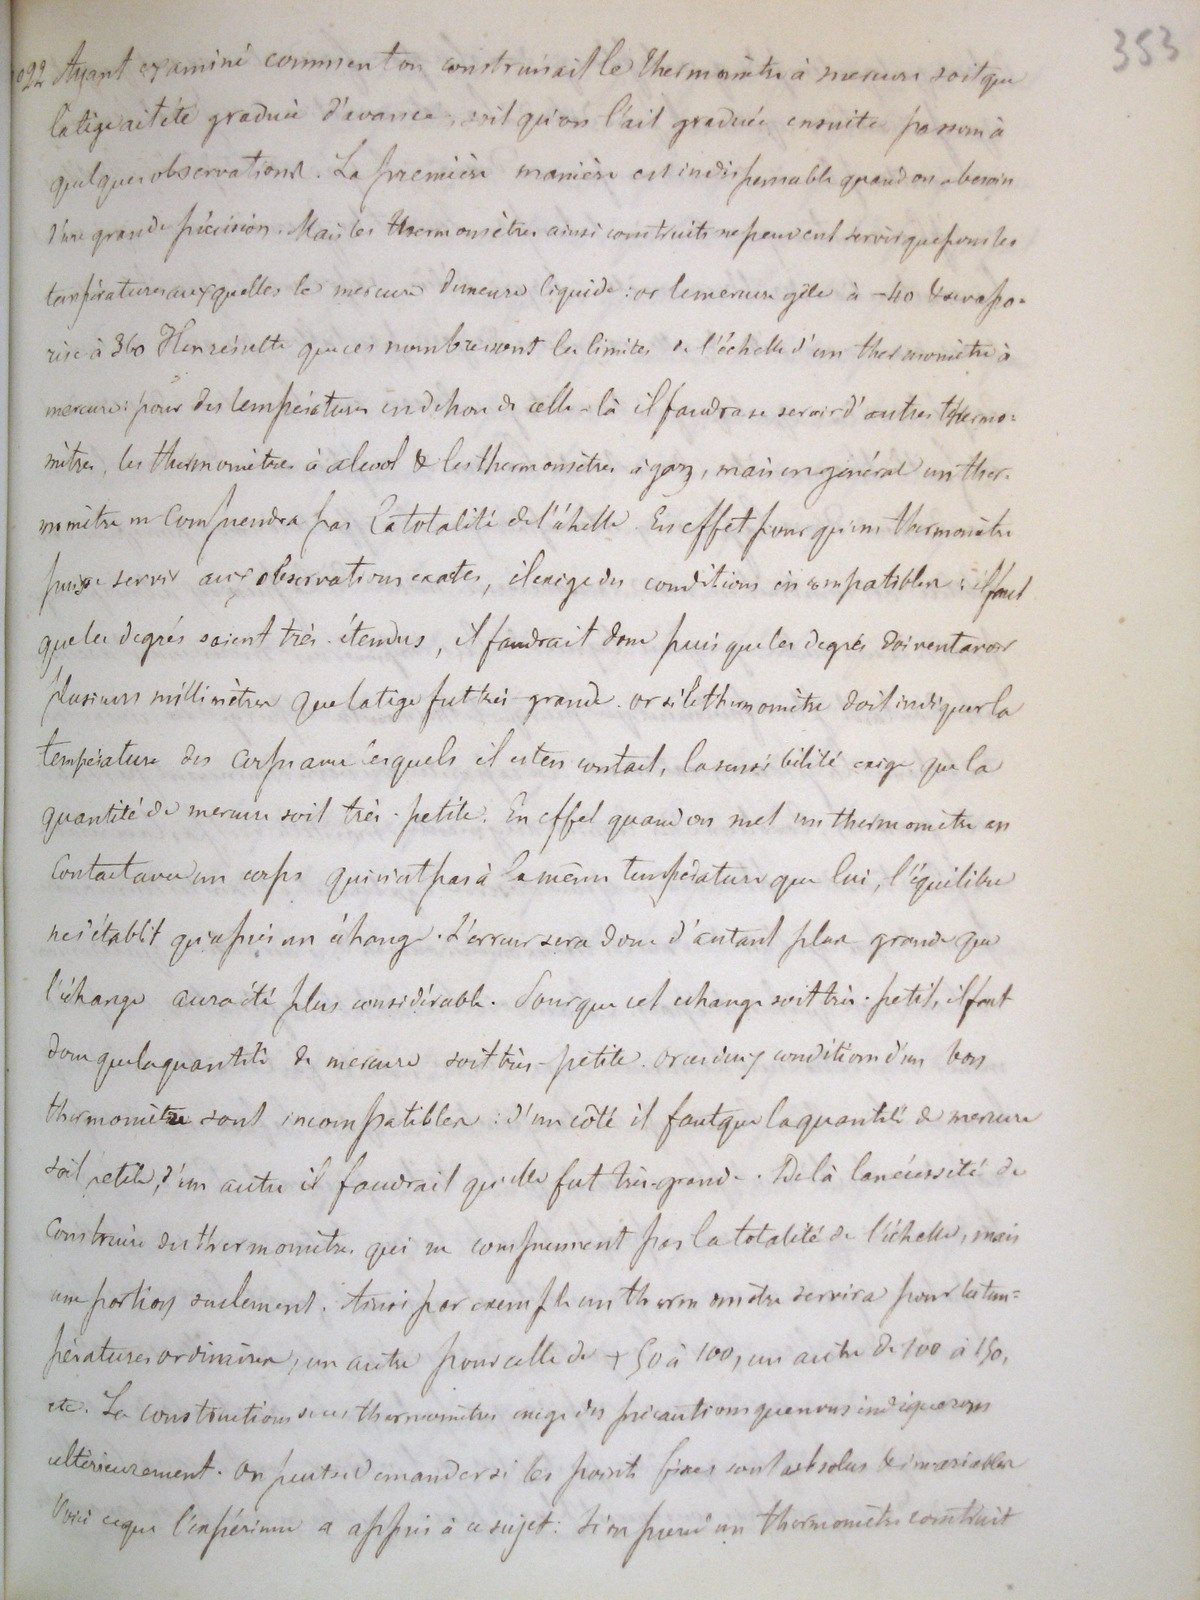 353
1022 Ayant examiné comment on construisait le thermomètre à mercure soit que
la tige ait été graduée d'avance, soit qu'on l'ait graduée ensuite passons à
quelques observations. La première manière est indispensable quand on a besoin
d'une grande précision. Mais les thermomètres ainsi construits ne peuvent servir que pour les
températures auxquelles le mercure demeure liquide : or le mercure gèle à -40 & se vapo-
rise à 360 Il en résulte que ces nombres sont les limites de l'échelle d'un thermomètre à
mercure : pour des températures en dehors de celle-là il faudra se servir d'autres thermo=
mètres, les thermomètres à alcool & les thermomètres à gaz, mais en général un ther-
momètre ne comprendra pas la totalité de l'échelle. En effet pour qu'un thermomètre
puisse servir aux observations exactes, il exige des conditions incompatibles : il faut
que les degrés soient très-étendus, il faudrait donc puisque les degrés doivent avoir
plusieurs millimètres que la tige fut très-grande. or si le thermomètre doit indiquer la
température des corps avec lesquels il est en contact, la sensibilité exige que la
quantité de mercure soit très-petite. En effet quand on met un thermomètre en
contact avec un corps qui n'est pas à la même température que lui, l'équilibre
ne s'établit qu'après un échange. L'erreur sera donc d'autant plus grande que
l'échange aura été plus considérable. Pour que cet échange soit très-petit, il faut
donc que la quantité de mercure soit très-petite. or ces deux conditions d'un bon
thermomètre sont incompatibles : d'un côté il faut que la quantité de mercure
soit petite, d'un autre il faudrait qu'elle fut très-grande. De là la nécessité de
construire des thermomètres qui ne comprennent pas la totalité de l'échelle, mais
une portion seulement. Ainsi par exemple un thermomètre servira pour les tem=
pératures ordinaires, un autre pour celle de +50 à 100, un autre de 100 à 150,
etc. La construction de ces thermomètres exige des précautions que nous indiquerons
ultérieurement. On peut se demander si les points fixes sont absolus & invariables
Voici ce que l'expérience a appris à ce sujet : Si on prend un thermomètre construit